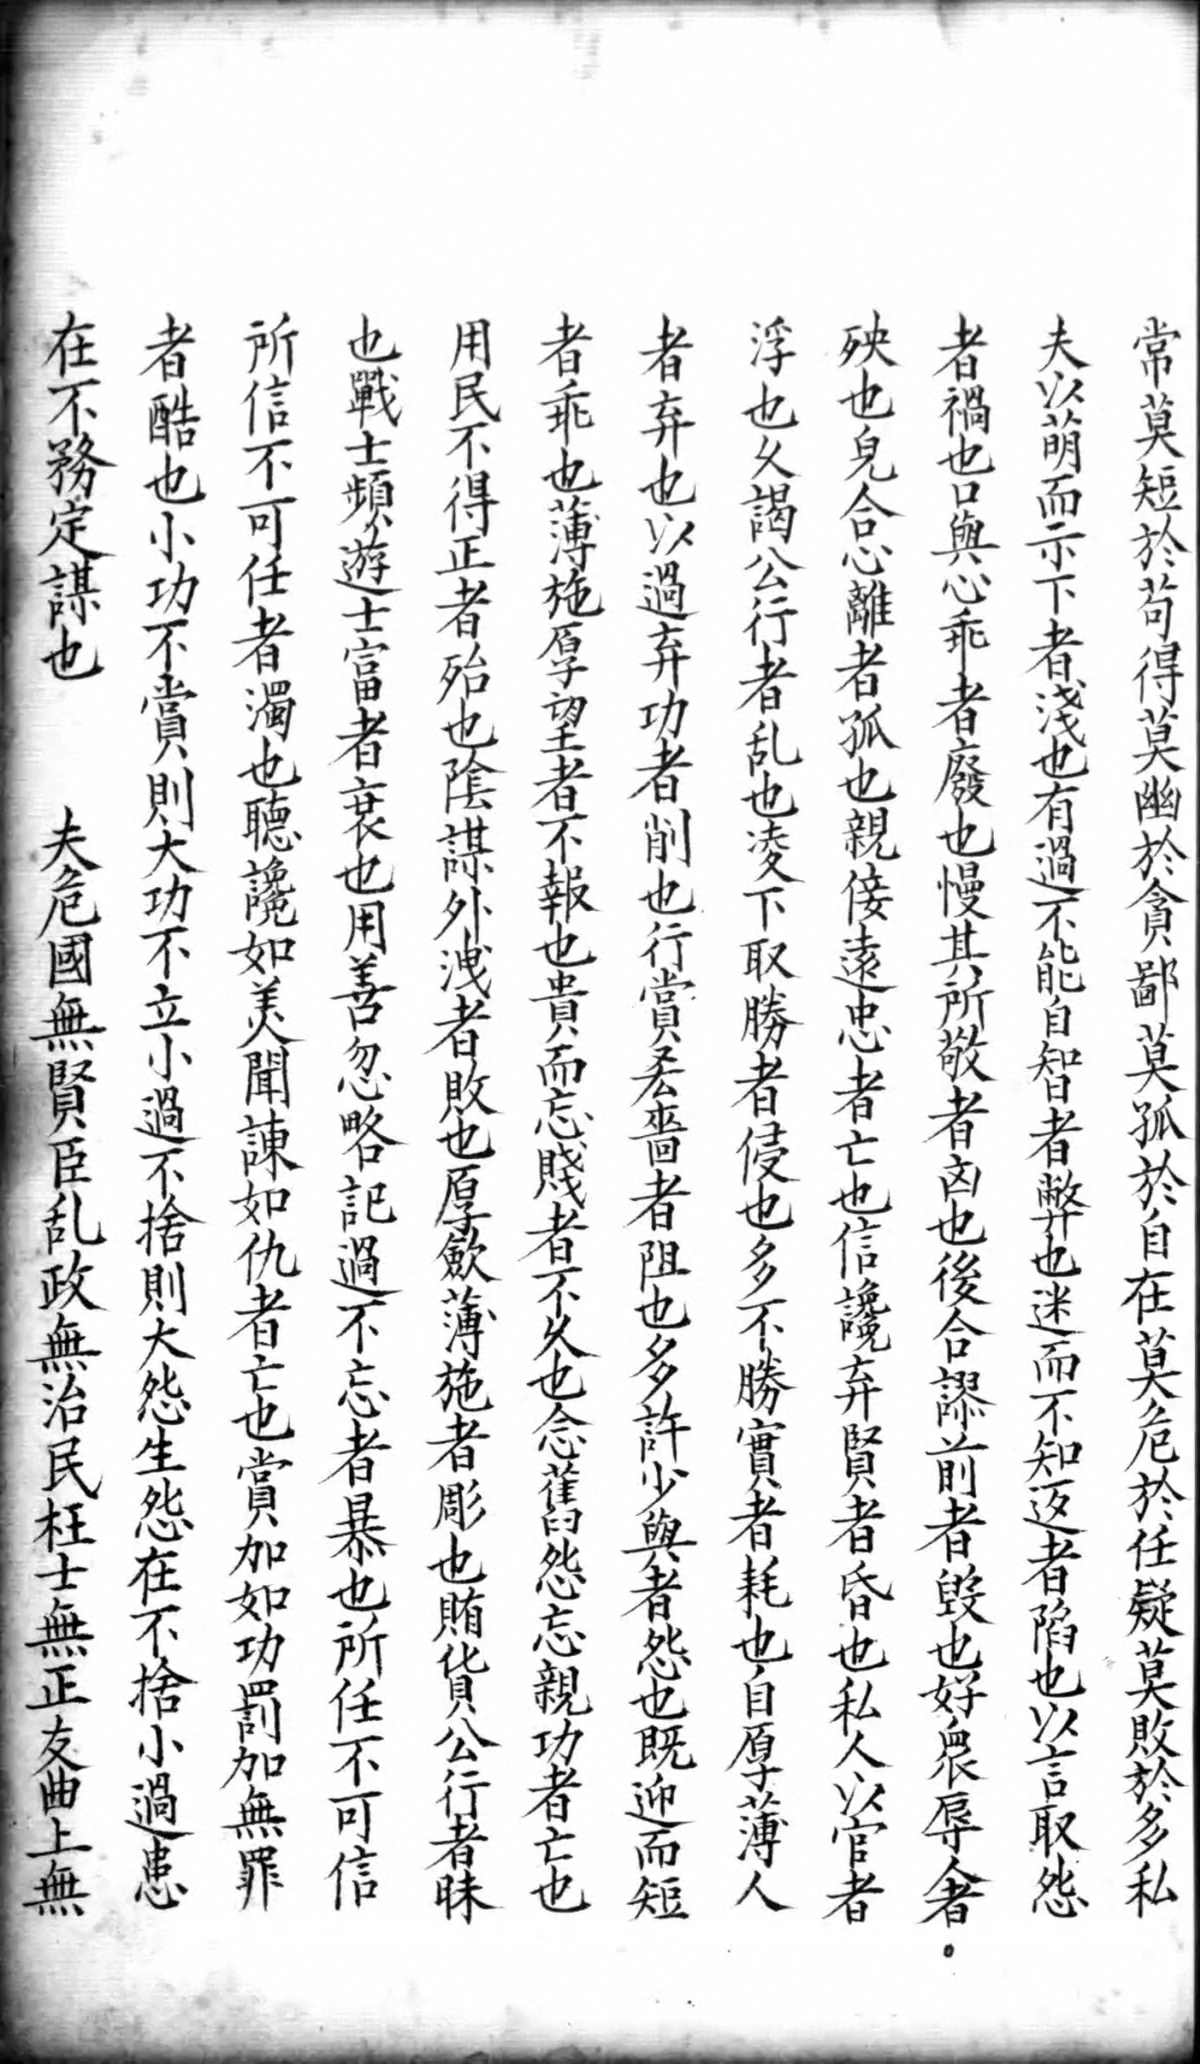 常莫短於苟得莫幽於貪鄙莫孤於自在莫危於任疑莫敗於多私
夫以萌而示下者淺也有過不能自知者弊也迷而不知返者陷也以言取怨
者禍也口與心乖者廢也慢其所敬者凶也後合謬前者毀也好衆辱人者
殃也皃合心離者孤也親佞遠忠者亡也信讒弃賢者昏也私人以官者
浮也女謁公行者乱也凌下取勝者侵也多不勝實者耗也自厚薄人
者弃也以過弃功者削也行賞悋嗇者阻也多許少與者怨也既迎而短
者乖也薄施厚望者不報也貴而忘賤者不久也念舊怨忘親功者亡也
用民不得正者殆也陰謀外洩者敗也厚歛薄施者彫也賄貨公行者昧
也戰士頻遊士富者衰也用善忽略記過不忘者暴也所任不可信
所信不可任者濁也聽讒如美聞諫如仇者亡也賞加如功罰加無罪
者酷也小功不賞則大功不立小過不捨則大怨生怨在不捨小過患
在不務定謀也　夫危國無賢臣乱政無治民枉士無正友曲上無